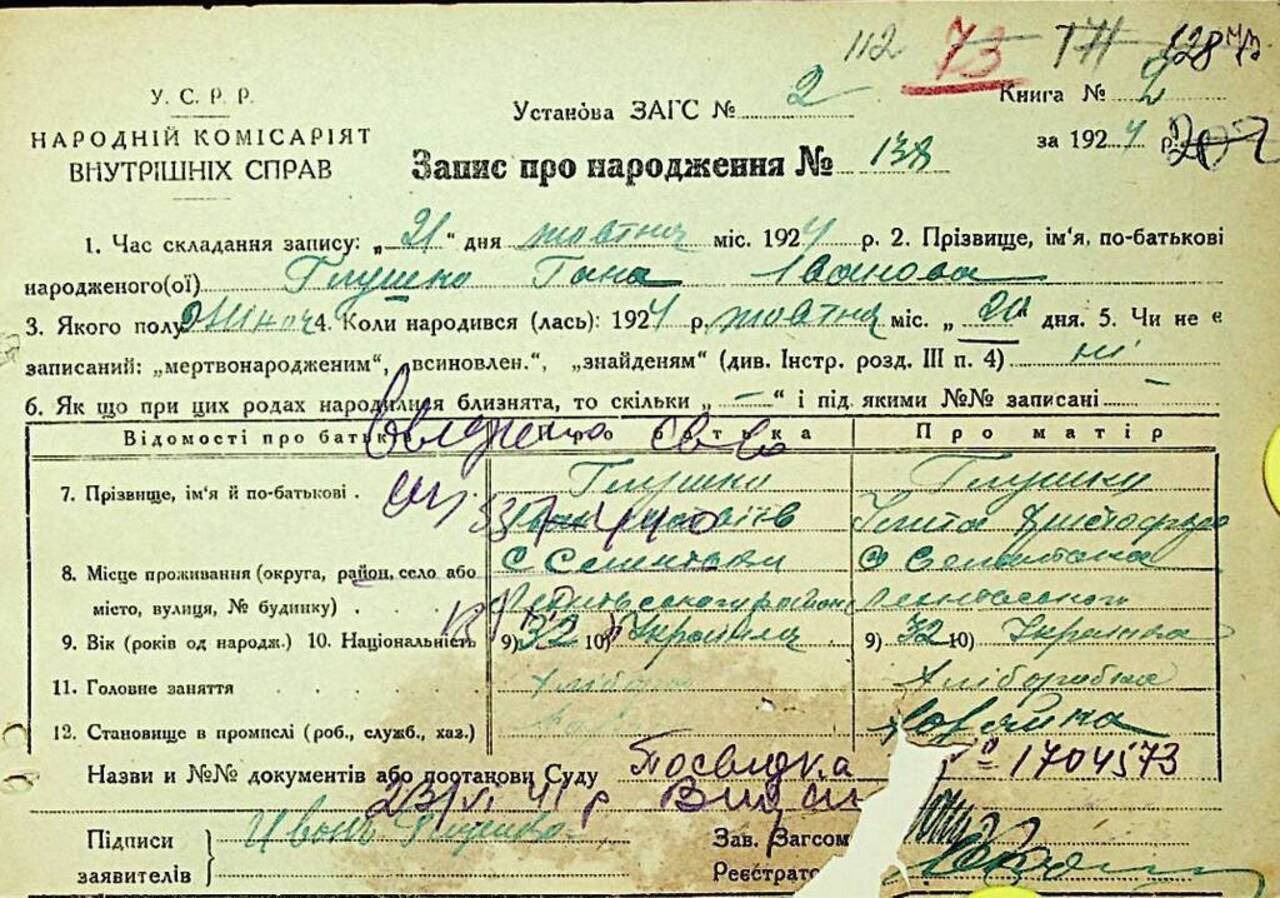 112 73 171 128
У. С. Р. Р.
НАРОДНІЙ КОМІСАРІЯТ
ВНУТРІШНІХ СПРАВ
Установа ЗАГС № 2
Книга № 2
за 1924 р. 207
Запис про народження № 138
1. Час складання запису: „21“ дня жовтня міс. 1924 р. 2. Прізвище, ім'я, по-батькові
народженого(ої) Глушко Гана Іванова
3. Якого полу жіноч 4. Коли народився (лась): 1924 р. жовтня міс. „20“ дня. 5. Чи не є
записаний: „мертвонародженим“, „всиновлен.“, „знайденям“ (див. Інстр. розд. III п. 4) ні
6. Як що при цих родах народилися близнята, то скільки „—“ і під якими №№ записані —
Відомості про батьків Про батька Про матір
7. Прізвище, ім'я й по-батькові . Глушко Глушку
8. Місце проживання (округа, район, село або с
місто, вулиця, № будинку) . . . . району
9. Вік (років од народж.) 10. Національність 9) 32 10) Українец 9) 32 10) Українка
11. Головне заняття . . . . . Хлібороб Хліборобка
12. Становище в промпслі (роб., служб., хаз.) Хазяйка
Назви и №№ документів або постанови Суду Посвідка № 1704573
23/VI 41 р
Підписи
заявителів
Иван
Зав. Загсом
Реєстрато